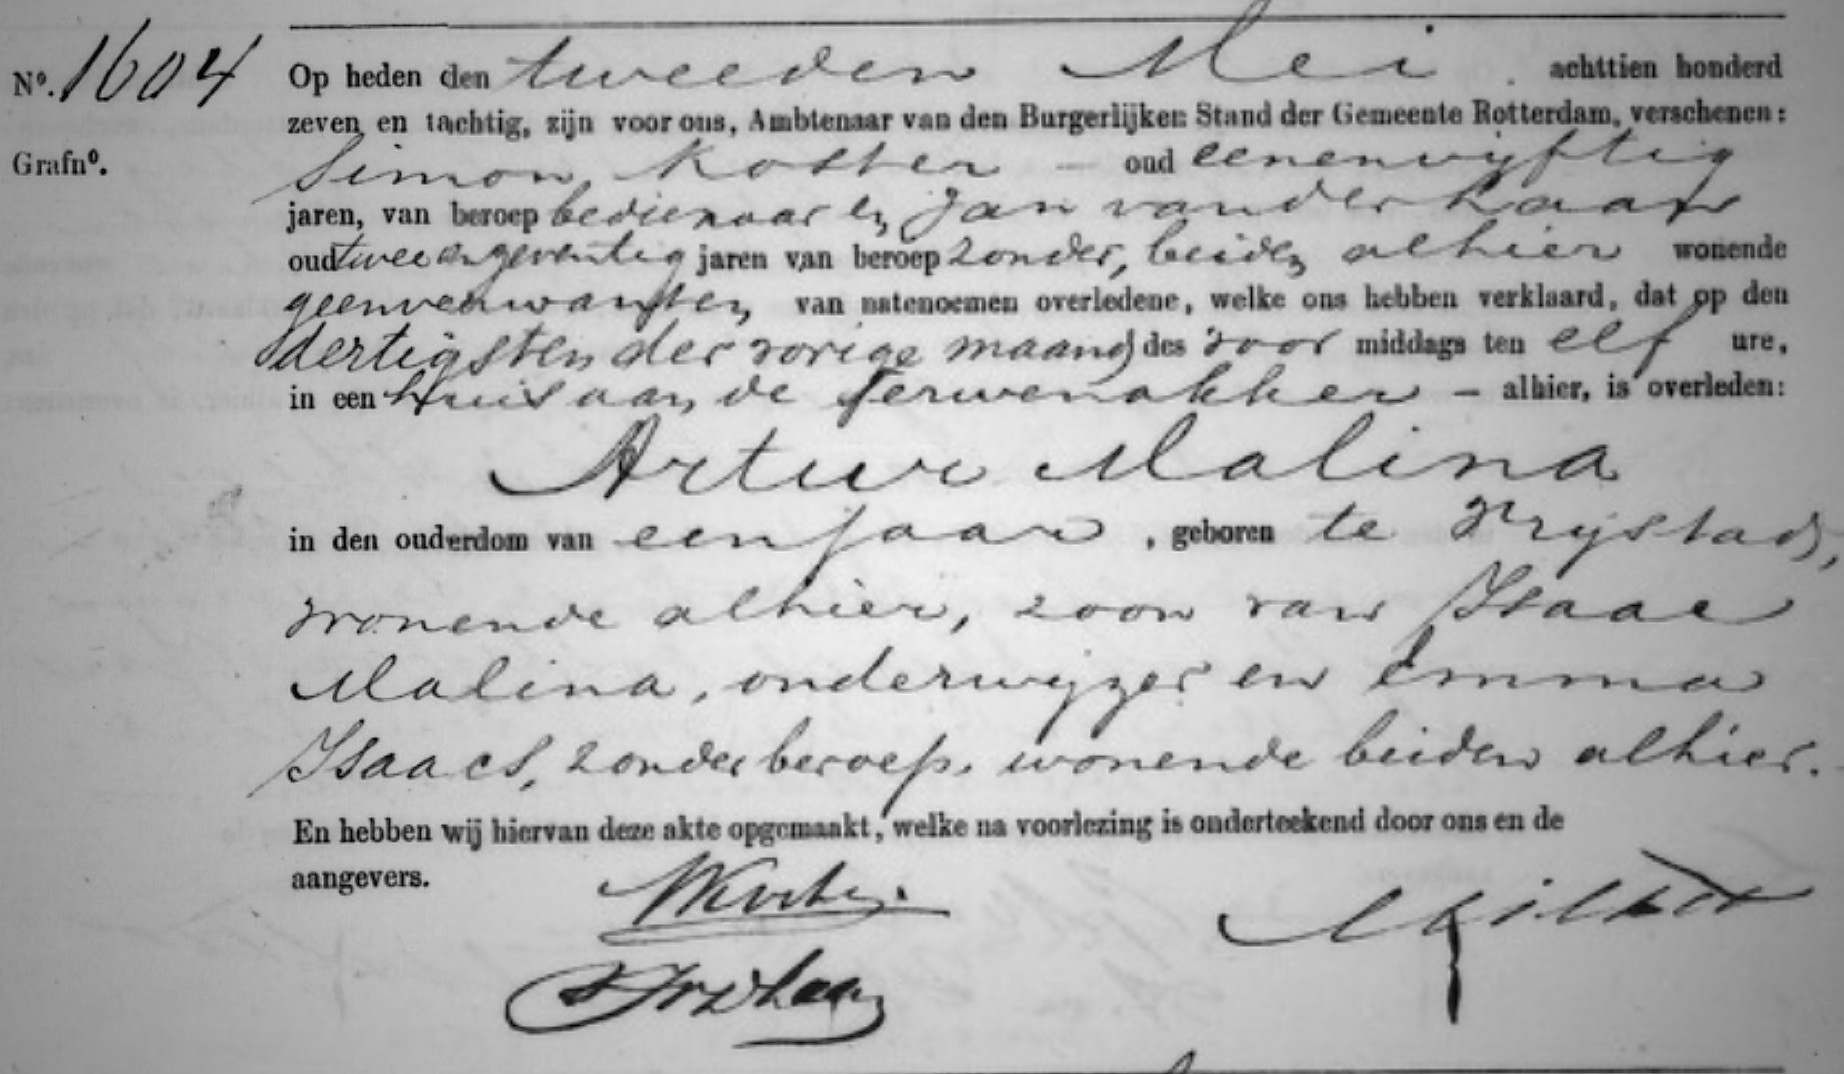 No. 1604 Op heden den tweeden Mei achttien honderd
zeven en tachtig, zijn voor ons, Ambtenaar van den Burgerlijken Stand der Gemeente Rotterdam, verschenen:
Grafno.
Simon Koster – oud eenenvijftig
jaren, van beroep bedienaar en Jan van der Haar
oud tweeenzeventig jaren van beroep zonder, beiden alhier wonende
geenverwanten van natenoemen overledene, welke ons hebben verklaard, dat op den
dertigsten der vorige maand des voor middags ten elf ure,
in een huis aan de Terwenakker – alhier, is overleden:
Artur Malina
in den ouderdom van een jaar, geboren te Frijstads,
wonende alhier, zoon van Isaac
Malina, onderwijzer en Emma
Isaacs, zonder beroep. wonende beiden alhier.
En hebben wij hiervan deze akte opgemaakt, welke na voorlezing is onderteekend door ons en de
aangevers.